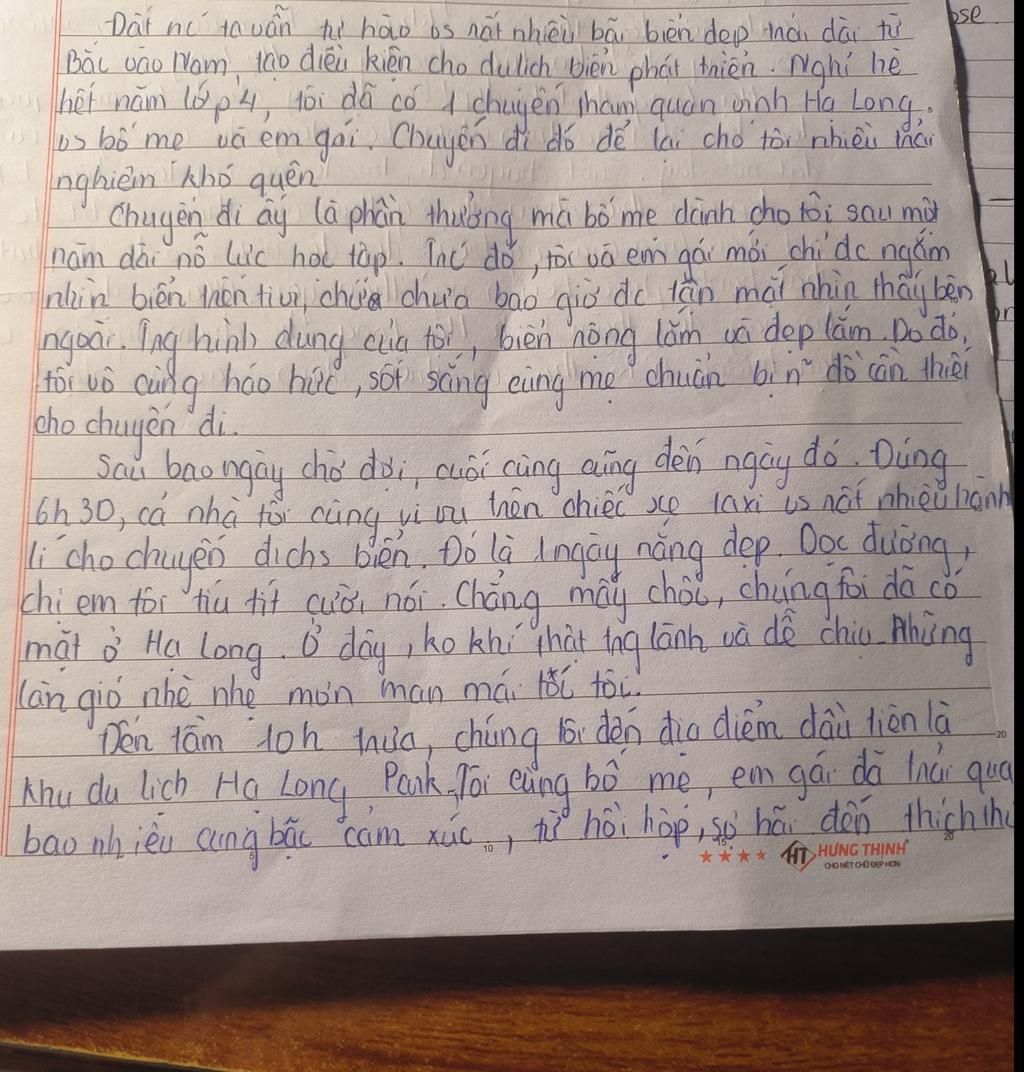 pse
Đất nc ta vẫn tự hào vs rất nhiều bãi biển đẹp trải dài từ
Bắc vào Nam, tạo điều kiện cho du lịch biển phát triển. Nghỉ hè
hết năm lớp 4, tôi đã có 1 chuyến tham quan vịnh Hạ Long,
vs bố mẹ và em gái. Chuyến đi đó để lại cho tôi nhiều trải
nghiệm khó quên
Chuyến đi ấy là phần thưởng mà bố mẹ dành cho tôi sau một
năm dài nỗ lực học tập. Trc đó, tôi và em gái mới chỉ đc ngắm
nhìn biển trên tivi, chưa bao giờ đc tận mắt nhìn thấy bên
ngoài. Trg hình dung của tôi, biển rộng lắm và đẹp lắm. Do đó,
tôi vô cùng háo hức, sốt sắng cùng mẹ chuẩn bị n~ đồ cần thiết
cho chuyến đi.
Sau bao ngày chờ đợi, cuối cùng cũng đến ngày đó. Đúng
6h30, cả nhà tôi cùng vi vu trên chiếc xe taxi vs rất nhiều hành
lí cho chuyến đi chs biển. Đó là 1 ngày nắng đẹp. Dọc đường,
chị em tôi tíu tít cười nói. Chẳng mấy chốc, chúng tôi đã có
mặt ở Hạ Long. Ở đây, ko khí thật trg lành và dễ chịu. Những
làn gió nhè nhẹ mơn man mái tóc tôi.
Đến tầm 10h trưa, chúng tôi đến địa điểm đầu tiên là
khu du lịch Hạ Long Park. Tôi cùng bố mẹ, em gái đã trải qua
bao nhiêu cung bậc cảm xúc, từ hồi hộp, sợ hãi đến thích thú
5 10 15 20
20
HT HƯNG THỊNH
CHO NÉT CHỮ ĐẸP HƠN